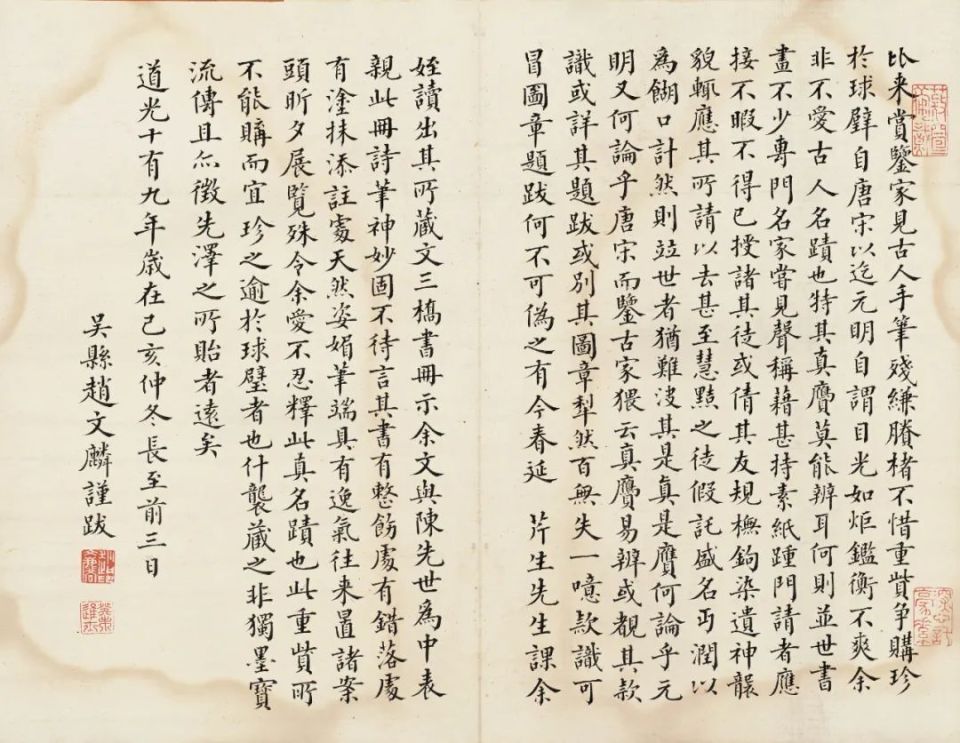 比来賞鑒家見古人手筆殘縑賸楮不惜重貲争購珍
於球璧自唐宋以迄元明自謂目光如炬鑑衡不爽余
非不愛古人名蹟也特其真贗莫能辨耳何則並世書
畫不少專門名家嘗見聲稱藉甚持素紙踵門請者應
接不暇不得已授諸其徒或倩其友規橅鉤染遺神襲
貌輒應其所請以去甚至慧黠之徒假託盛名丐潤以
為餬口計然則竝世者猶難决其是真是贗何論乎元
明又何論乎唐宋而鑒古家猥云真贗易辨或覩其款
識或詳其題跋或別其圖章犁然百無失一噫款識可
冒圖章題跋何不可偽之有今春延 芹生先生課余
姪讀出其所藏文三橋書冊示余文與陳先世為中表
親此冊詩筆神妙固不待言其書有整飭處有錯落處
有塗抹添註處天然姿媚筆端具有逸氣往来置諸案
頭昕夕展覽殊令余愛不忍釋此真名蹟也此重貲所
不能購而宜珍之逾於球璧者也什襲藏之非獨墨寶
流傳且忝徵先澤之所貽者遠矣
道光十有九年歲在己亥仲冬長至前三日
吳縣趙文麟謹跋